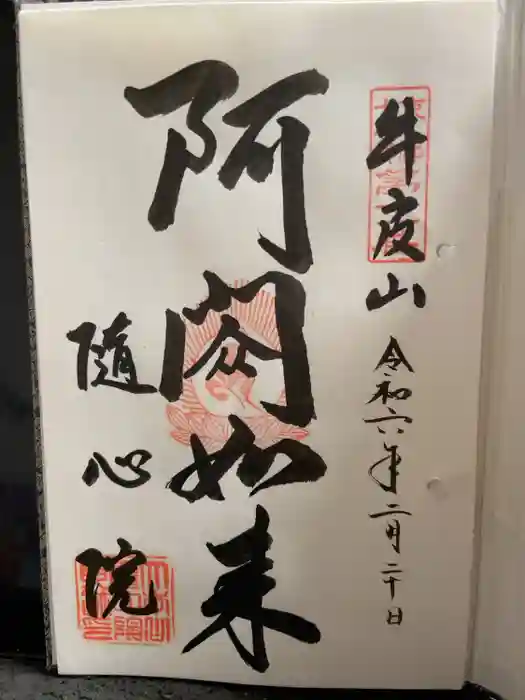 牛皮山 令和六年二月二十日
阿閦如来
随心院